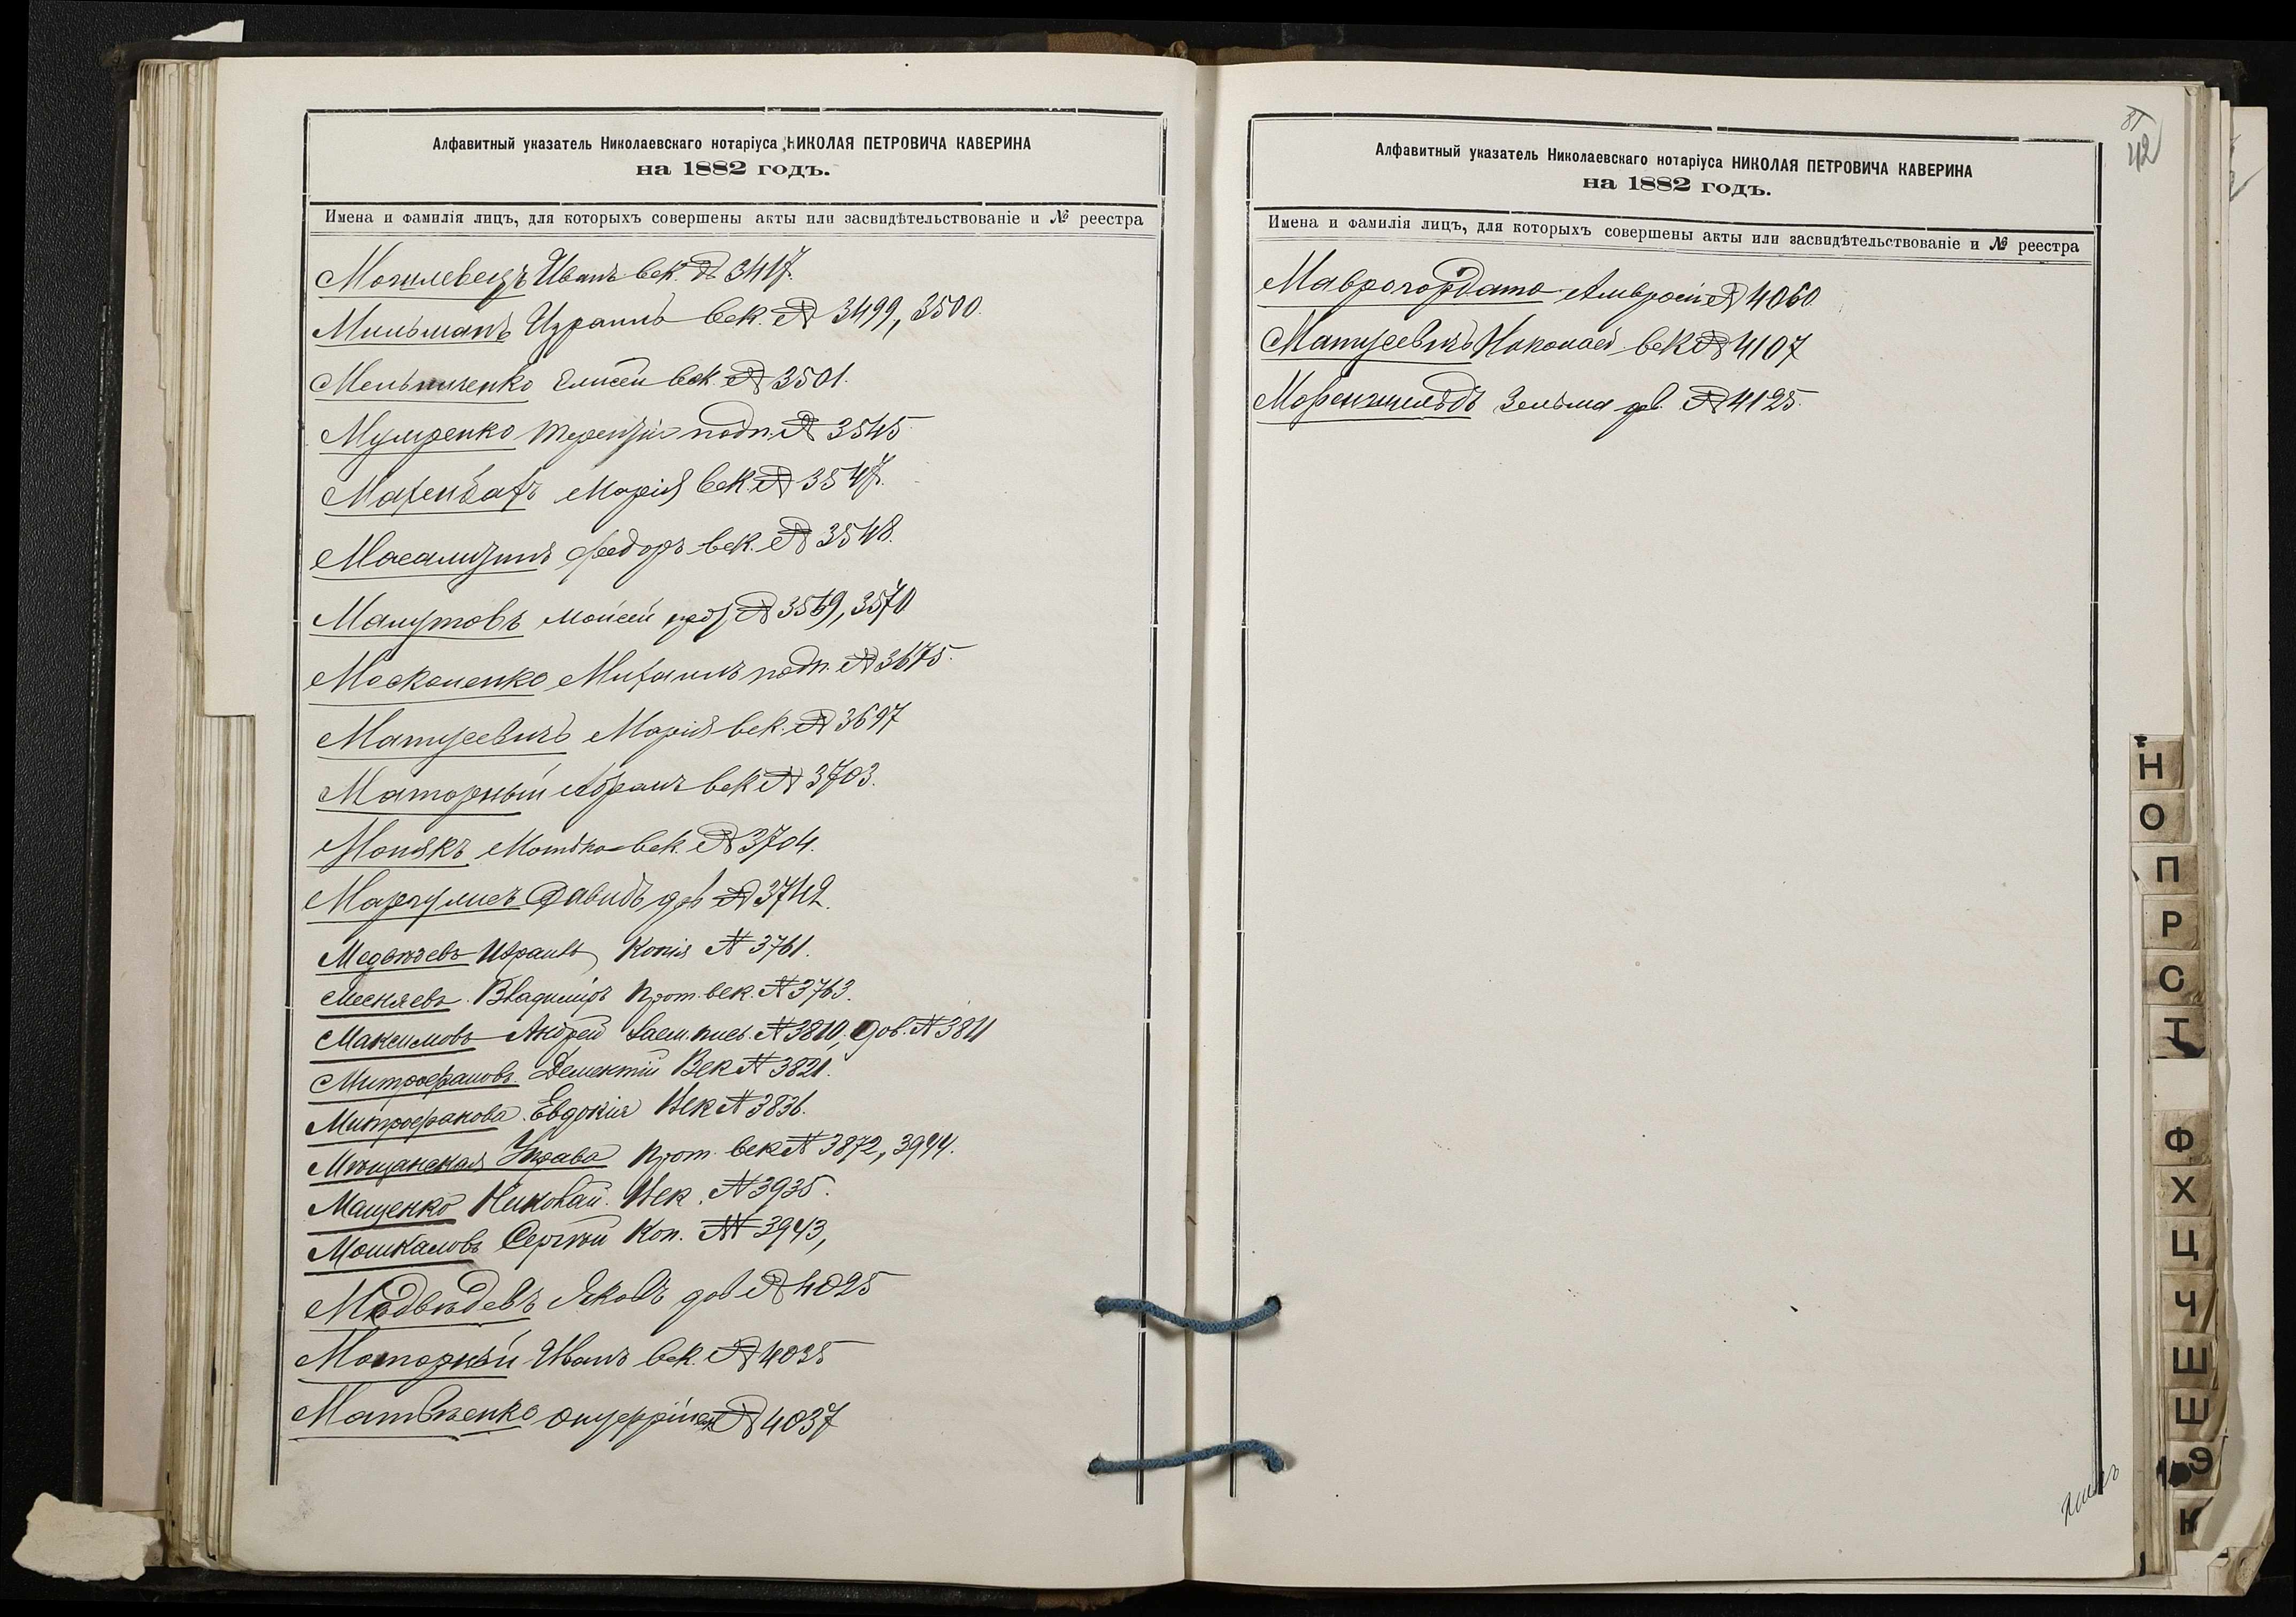 Алфавитный указатель Николаевскаго нотаріуса НИКОЛАЯ ПЕТРОВИЧА КАВЕРИНА
на 1882 годъ.
Имена и фамилія лицъ, для которыхъ совершены акты или засвидѣтельствованіе и № реестра
Могилевецъ Иванъ век. № 3417.
Мильманъ Израиль век. № 3499, 3500.
Мельниченко Елисей век. № 3501.
Терентій подп. № 3545
Марія век. № 3547.
Федоръ век. № 3548.
Мамутовъ Моисей № 3569, 3570
Москаленко Михаилъ подп. № 3675.
Матусевичъ Марія век. № 3697
Маторный Абрамъ век № 3703.
век. № 3704.
Маргулисъ Давидъ дов № 3742.
Медвѣдевъ Израиль Копія № 3761.
Месняевъ Владиміръ Прот. век. № 3763.
Максимовъ Андрей Заем. пис. № 3810, Дов. № 3811
Митрофановъ Дементій Век № 3821.
Митрофанова Евдокія Век № 3836.
Мѣщанская Управа Прот. век № 3872, 3944.
Мащенко Николай Век. № 3935.
Мошкаловъ Сергѣй Коп. № 3943,
Медвѣдевъ Яковъ дов № 4025
Моторный Иванъ век. № 4035
Матвѣенко Онуфрій век № 4037
Алфавитный указатель Николаевскаго нотаріуса НИКОЛАЯ ПЕТРОВИЧА КАВЕРИНА
на 1882 годъ.
Имена и фамилія лицъ, для которыхъ совершены акты или засвидѣтельствованіе и № реестра
Маврогордато Амвросій № 4060
Матусевичъ Николай век № 4107
Моргеншильдъ Зельма дов. № 4125.
42
Н
О
П
Р
С
Т
Ф
Х
Ц
Ч
Ш
Ш
Э